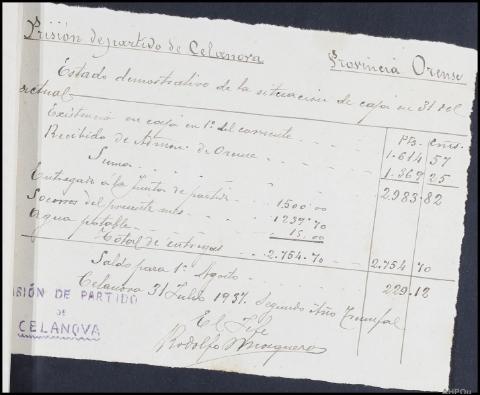 Prisión de partido de Celanova Provincia Orense
Estado demostrativo de la situación de caja en 31 del
actual
Ptas. Cnts.
Existencia en caja en 1º del corriente 1.614 57
Recibido de Admon. de Orense 1.369 25
Suma 2.983 82
Entregas a la Junta de partido 1500.00
Socorros del presente mes 1239.70
Agua potable 15.00
Total de entregas 2.754.70 2.754 70
Saldo para 1º Agosto 229.12
Celanova 31 Julio 1937. Segundo Año Triunfal
El Jefe
Rodolfo Mosquera
PRISIÓN DE PARTIDO
DE
CELANOVA
AHPOu